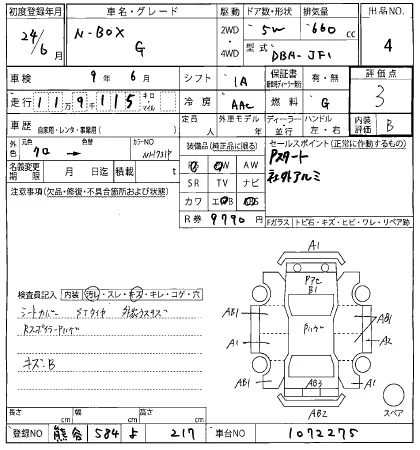 初度登録年月 車名・グレード 駆動 ドア数・形状 排気量 出品NO
24/6月 N-BOX G 2WD・4WD 5W 660cc 4
型式 DBA-JF1
車検 9年6月 シフト IA 保証書 有・無 評価点
走行 11万9千115 キロ・マイル 冷房 AAC 燃料 G 3
車歴 自家用・レンタ・事業用( ) 定員 人 外車モデル 年 ディーラー・並行 ハンドル 左・右 内装評価 B
外色 元色 クロ 色替 カラーNO NH731P
装備品(純正品に限る) セールスポイント(正常に作動するもの)
名義変更期限 月 日迄 積載 t
AW Pスタート
SR TV ナビ 社外アルミ
注意事項(欠品・修復・不具合箇所および状態)
カワ
R券 9790円
Fガラス トビ石・キズ・ヒビ・ワレ・リペア跡
A1
Pアセ
B1
検査員記入 内装 汚れ・スレ・キズ・キレ・コゲ・穴
シートカバー STタイヤ
AB1 AB1
A1 A2
キズ:B
AB1 AB3 A1
AB2
スペア
長さ cm 幅 cm 高さ cm
登録NO 熊谷 584 よ 217 車台NO 1072275